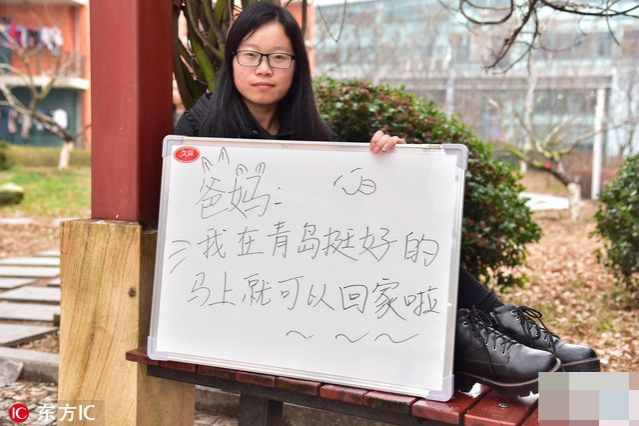 久益
爸妈:
我在青岛挺好的
马上就可以回家啦
~ ~ ~
东方IC